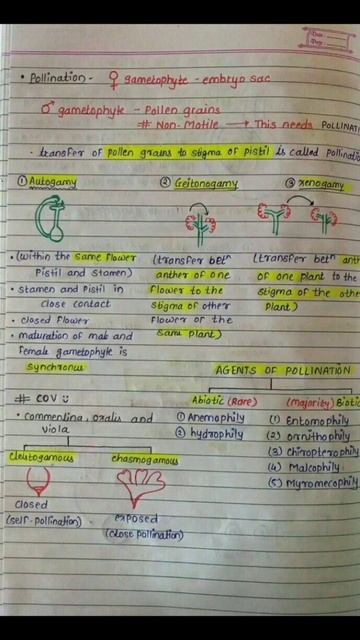 Date
Page
• Pollination - ♀ gametophyte - embryo sac
♂ gametophyte - Pollen grains
# Non-Motile → This needs POLLINAT
• transfer of pollen grains to stigma of pistil is called pollinatio
① Autogamy
② Geitonogamy
③ xenogamy
• (within the same flower
Pistil and Stamen)
• stamen and Pistil in
close contact
• closed flower
• maturation of male and
female gametophyte is
synchronus
(transfer betⁿ
anther of one
flower to the
stigma of other
flower of the
same plant)
(transfer betⁿ anth
of one plant to the
stigma of the othe
plant)
# COV
• commenlina, oxalis and
viola
cleistogamous
chasmogamous
closed
(self-pollination)
exposed
(close pollination)
AGENTS OF POLLINATION
Abiotic (Rare)
① Anemophily
② hydrophily
(majority) Biotic
(1) Entomophily
(2) ornithophily
(3) Chiropterophily
(4) Malcophily
(5) Myromecophily